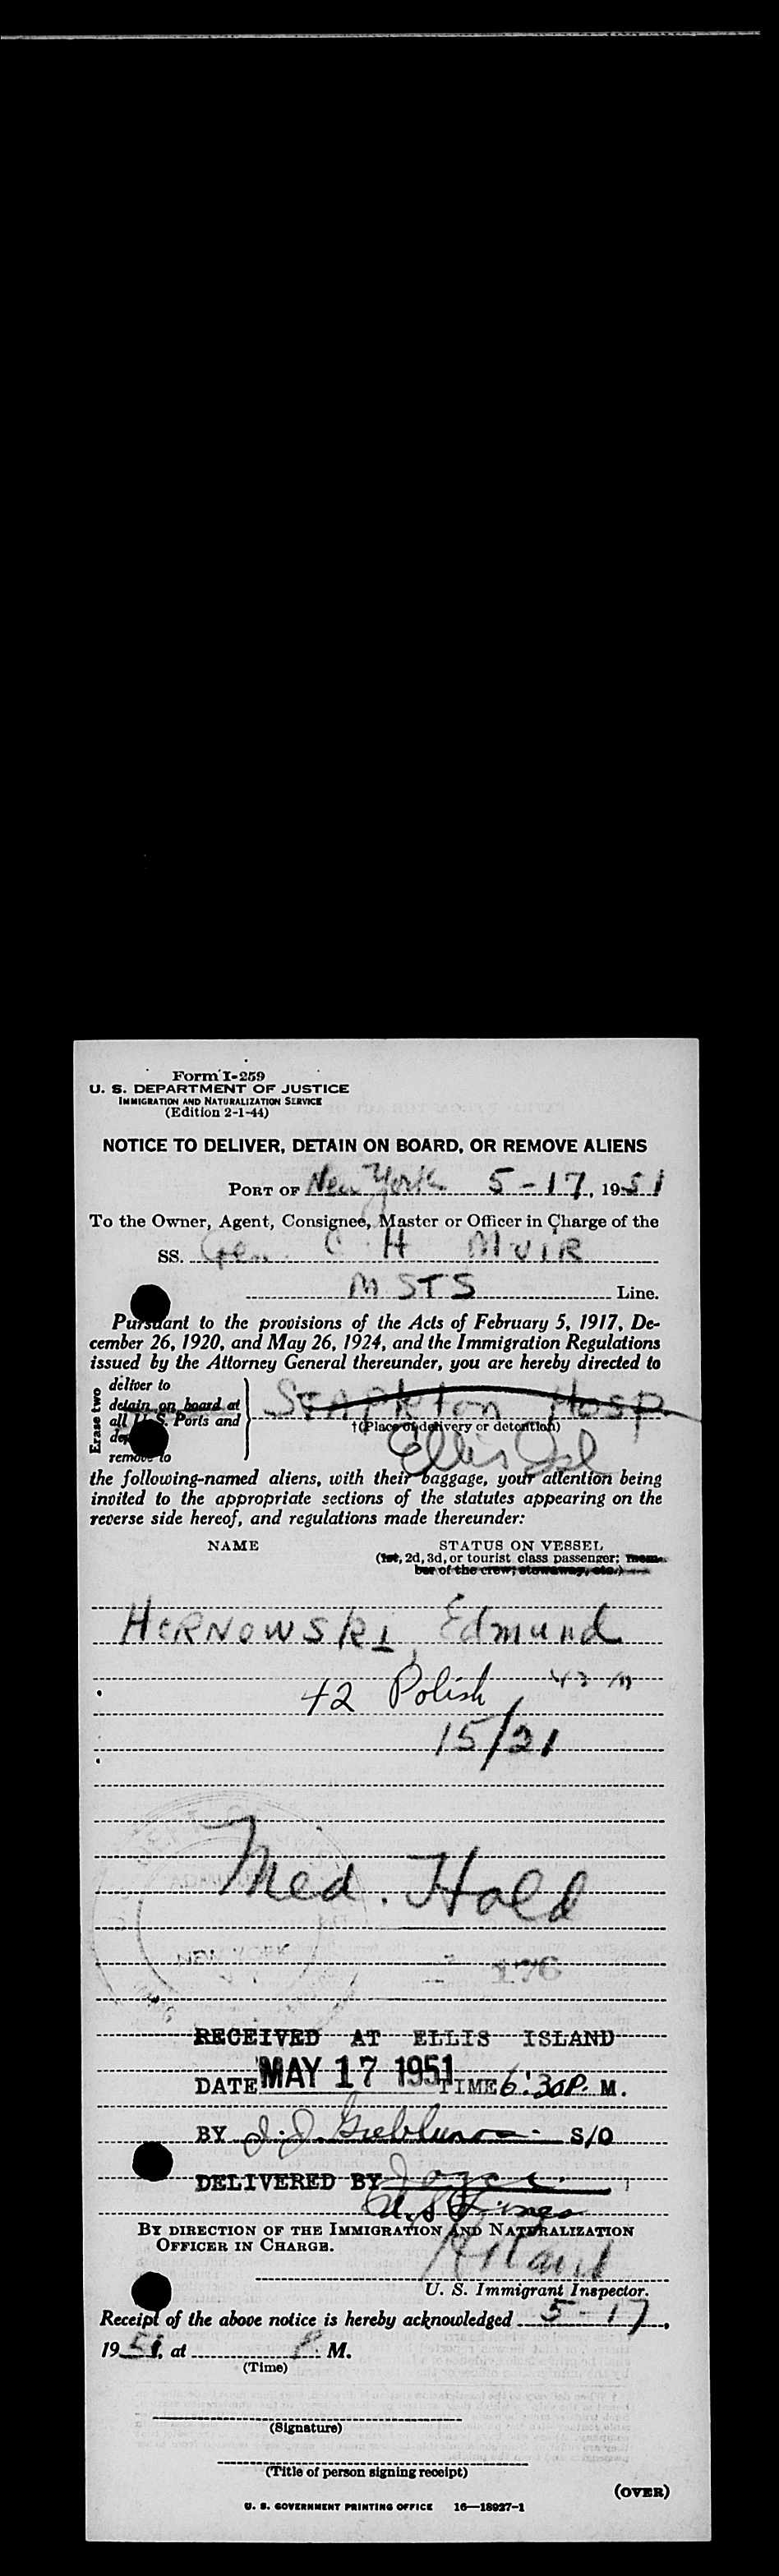 Form I-259
U. S. DEPARTMENT OF JUSTICE
IMMIGRATION AND NATURALIZATION SERVICE
(Edition 2-1-44)
NOTICE TO DELIVER, DETAIN ON BOARD, OR REMOVE ALIENS
PORT OF New York 5-17, 1951
To the Owner, Agent, Consignee, Master or Officer in Charge of the
SS. Gen. C H MUIR
MSTS Line.
Pursuant to the provisions of the Acts of February 5, 1917, De-
cember 26, 1920, and May 26, 1924, and the Immigration Regulations
issued by the Attorney General thereunder, you are hereby directed to
Erase two
deliver to
detain on board at
all U. S. Ports and
remove to
Stapleton Hosp
†(Place of delivery or detention)
Ellis Isl
the following-named aliens, with their baggage, your attention being
invited to the appropriate sections of the statutes appearing on the
reverse side hereof, and regulations made thereunder:
NAME STATUS ON VESSEL
(1st, 2d, 3d, or tourist class passenger; mem-
ber of the crew; stowaway, etc.)
HERNOWSKI, Edmund
42 Polish 42 m
15/21
Med. Hold
NEW YORK
176
RECEIVED AT ELLIS ISLAND
DATE MAY 17 1951 TIME 6:30 P. M.
BY J.J. S/O
DELIVERED BY Joyce
U.S. Lines
BY DIRECTION OF THE IMMIGRATION AND NATURALIZATION
OFFICER IN CHARGE.
U. S. Immigrant Inspector.
Receipt of the above notice is hereby acknowledged 5-17,
1951, at P. M.
(Time)
(Signature)
(Title of person signing receipt)
(OVER)
U. S. GOVERNMENT PRINTING OFFICE 16—18927-1